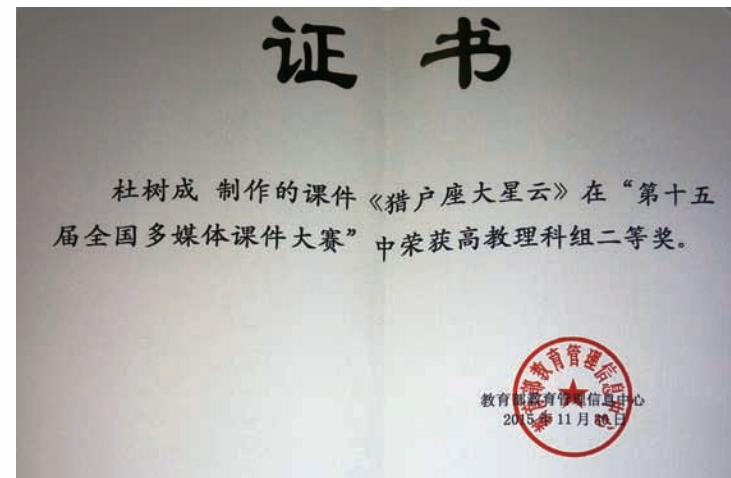 证书
杜树成 制作的课件《猎户座大星云》在“第十五
届全国多媒体课件大赛”中荣获高教理科组二等奖。
教育部教育管理信息中心
教育部教育管理信息中心
2015年11月 日